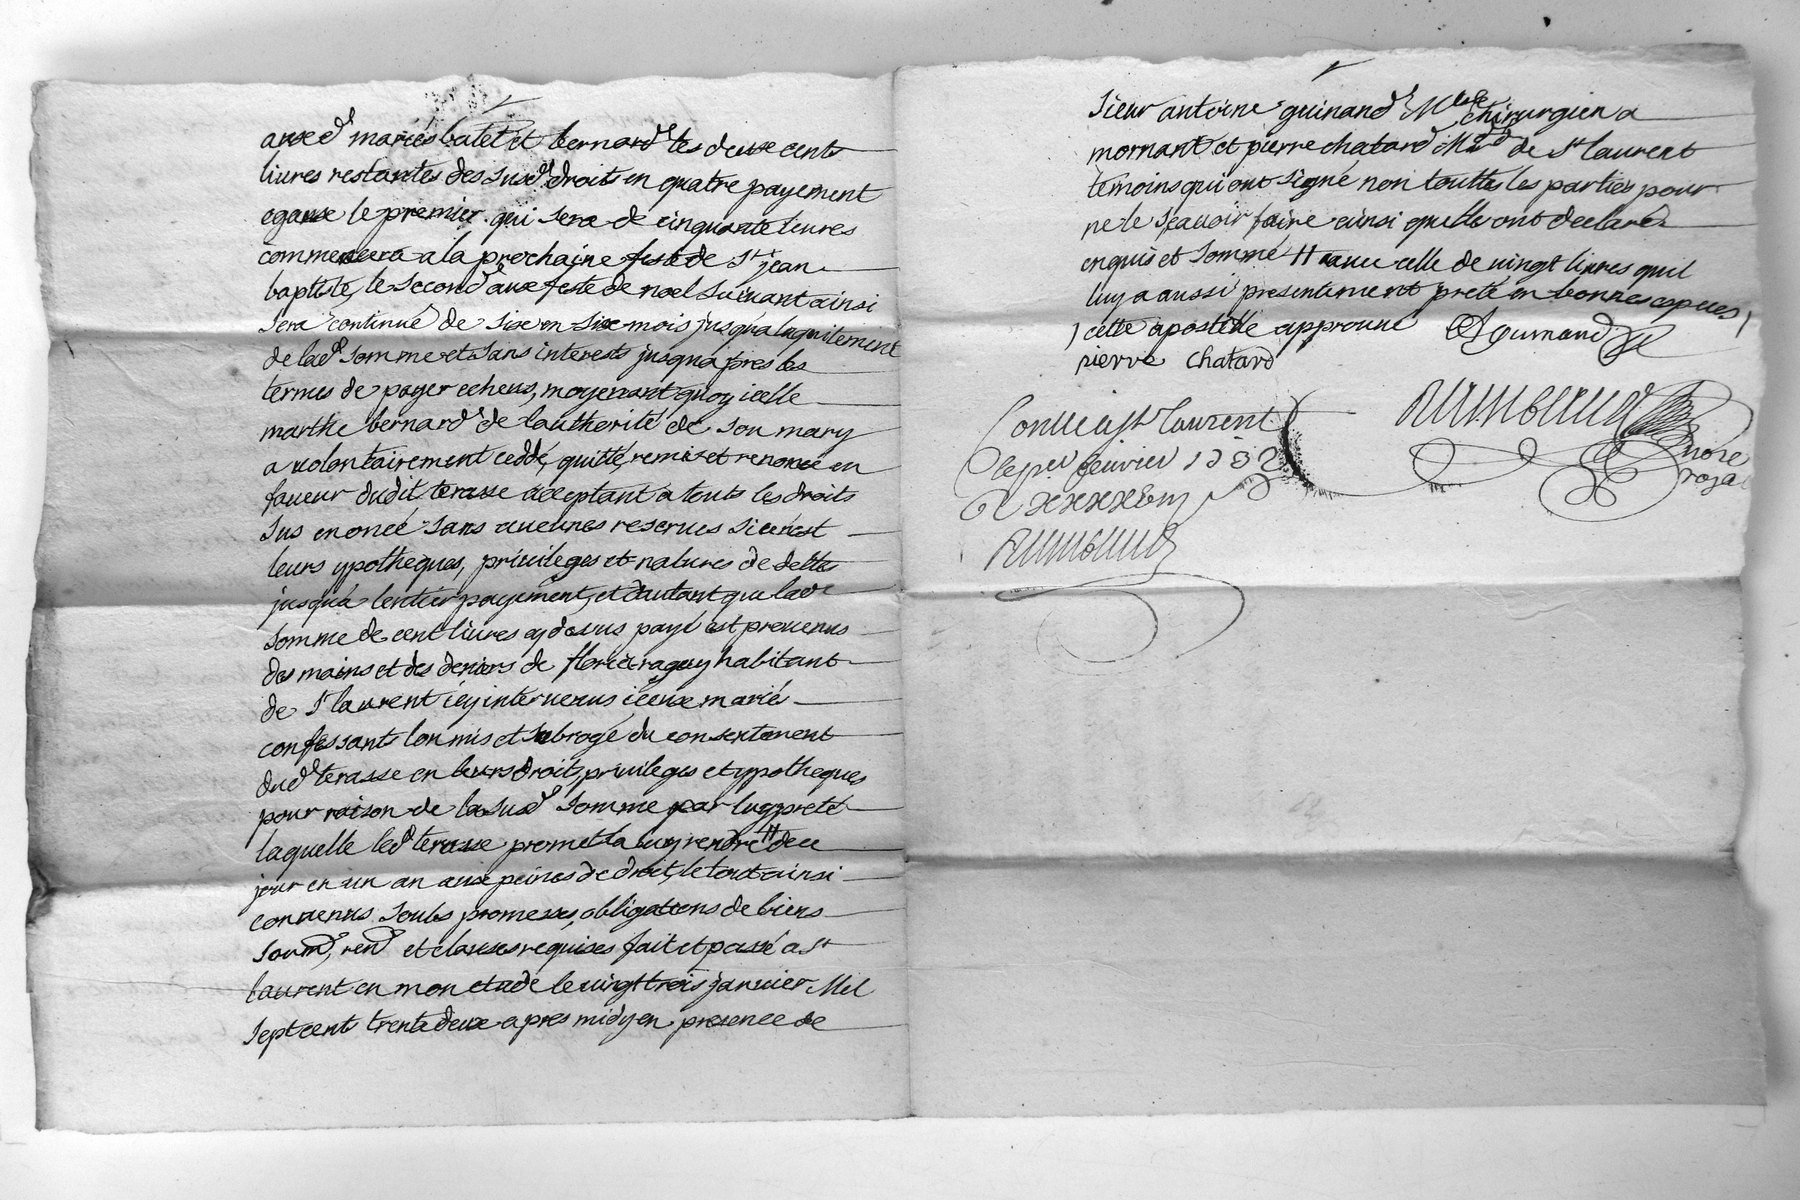 auxd mariés batet et bernard les deux cents
livres restantes des susd droits en quatre payement
egaux le premier qui sera de cinquante livres
commencera a la prochaine feste de St jean
baptiste, le second aux feste de noel suivant ainsi
sera continué de six en six mois jusqua laquitement
de lad somme et sans interests jusquapres les
termes de payer echeus, moyenant quoy icelle
marthe bernard de lautherité de son mary
a volontairement ceddé, quitté, remis et renoncé en
faveur dudit terasse acceptant a touts les droits
sus enoncé sans aucunes reserves si ce nest
leurs ypotheques, privileges et natures de debtes
jusqua lentier payement, et dautant que lad
somme de cent livres cy dessus payé est provenus
des mains et des deniers de floris raguy habitant
de St laurent icy intervenus iceux mariés
confessants lon mis et subrogé du consentement
dud terasse en leurs droits, privileges et ypotheques
pour raison de la susd somme par luy preté
laquelle led terasse promet la luy rendre # de ce
jour en un an aux peines de droit, le tout ainsi
convenus soubs promesses, obligations de biens
soum, ren et clauses requises fait et passé a St
laurent en mon etude le vingt trois janvier Mil
sept cent trente deux apres midy en presence de
sieur antoine guinand Me chirurgien a
mornant et pierre chatard Md de St laurent
temoins qui ont signé non touttes les parties pour
ne le sçavoir faire ainsi quelle ont declaré
enquis et sommé # avec celle de vingt livres quil
luy a aussi presentement preté en bonnes especes
cette apostille approuvé A Guinand
pierre chatard
Conllé a St Laurent
le per fevrier 1732
not re
royal